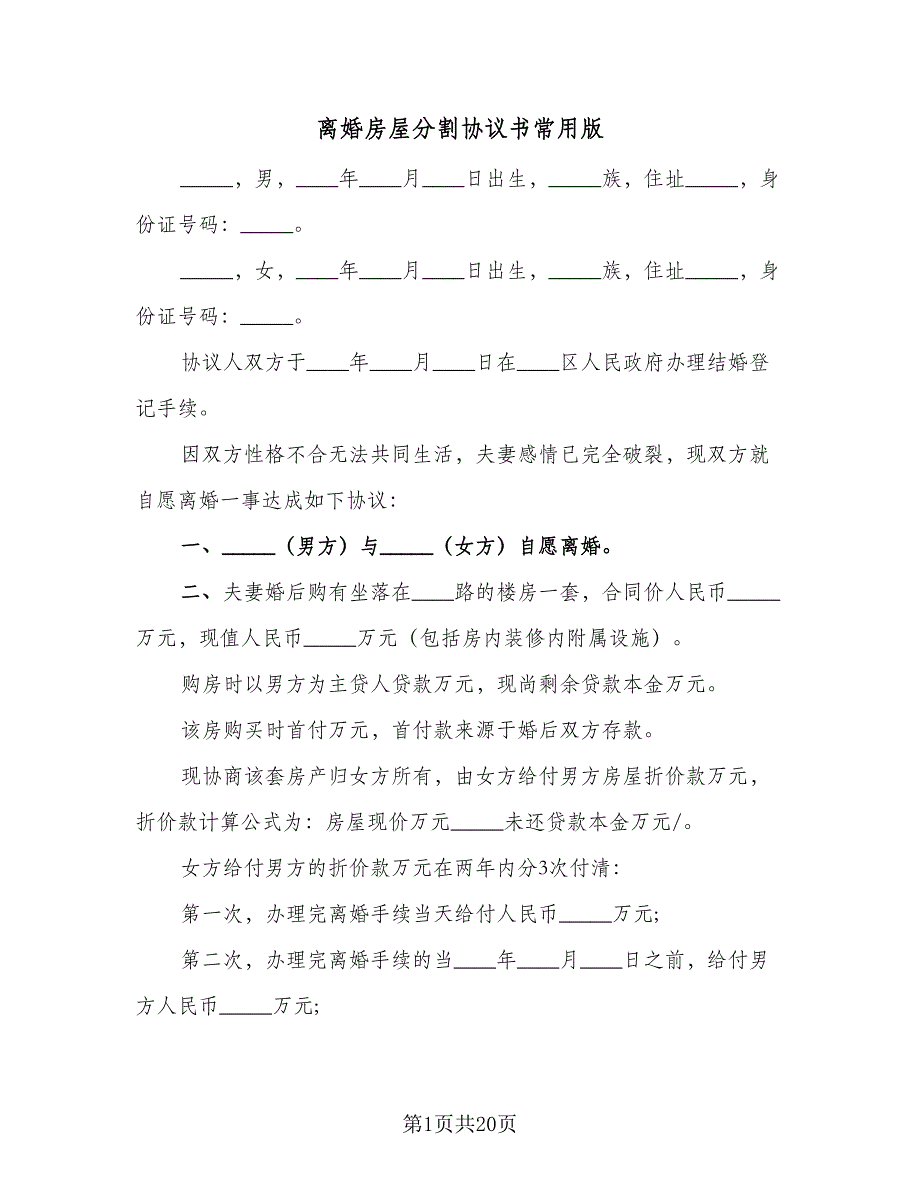 离婚房屋分割协议书常用版
_____，男，____年____月____日出生，_____族，住址_____，身
份证号码：_____。
_____，女，____年____月____日出生，_____族，住址_____，身
份证号码：_____。
协议人双方于____年____月____日在____区人民政府办理结婚登
记手续。
因双方性格不合无法共同生活，夫妻感情已完全破裂，现双方就
自愿离婚一事达成如下协议：
一、_____（男方）与_____（女方）自愿离婚。
二、夫妻婚后购有坐落在____路的楼房一套，合同价人民币_____
万元，现值人民币_____万元（包括房内装修内附属设施）。
购房时以男方为主贷人贷款万元，现尚剩余贷款本金万元。
该房购买时首付万元，首付款来源于婚后双方存款。
现协商该套房产归女方所有，由女方给付男方房屋折价款万元，
折价款计算公式为：房屋现价万元_____未还贷款本金万元/。
女方给付男方的折价款万元在两年内分3次付清：
第一次，办理完离婚手续当天给付人民币_____万元;
第二次，办理完离婚手续的当____年____月____日之前，给付男
方人民币_____万元;
第1页共20页